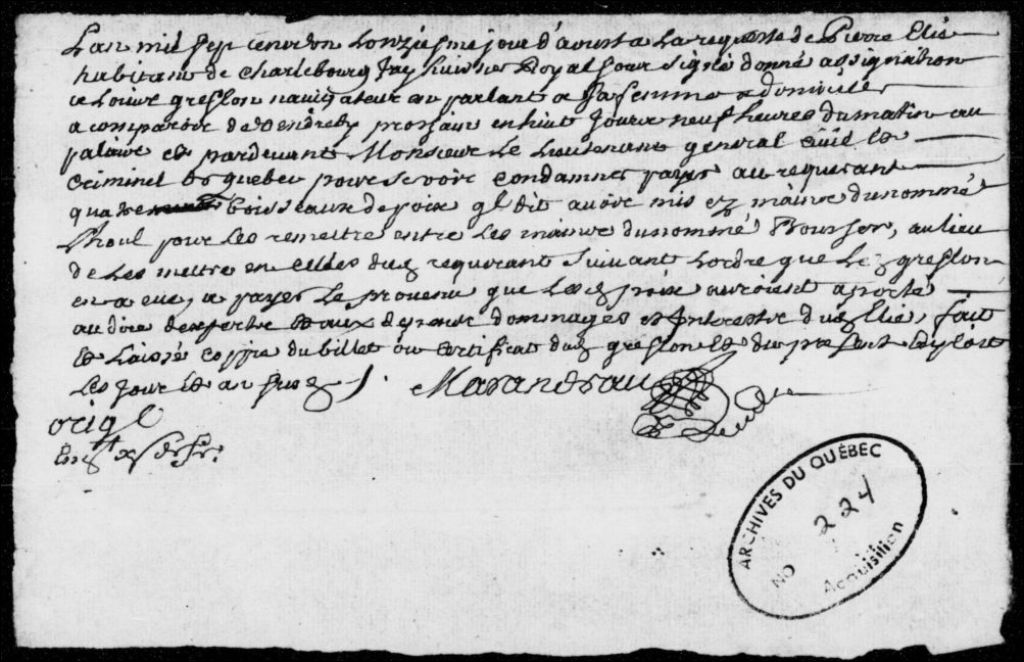 L'an mil sept cent un Lonziesme jour d'aoust a La requeste de Pierre Elie
habitant de Charlebourg Jay huissier Royal soubsigné donné assignation
a Louis greslon navigateur en parlant a sa femme a domicile
a comparoir de vendredy prochain en huit Jours neuf heures du matin au
palais et pardevant Monsieur Le Lieutenant general civil et
Criminel de quebec pour se voir condamner payer au requerant
quatre boisseaux de poix ql dit avoir mis ez mains du nommé
pour Les remettre entre Les mains du nommé, au lieu
de Les mettre en celles dud requerant suivant Lordre que Led greslon
en a eue, a payer Le provenu que Lesd poix auroient aporté
au dire d'experts et aux depens dommages et Interestz dud Elie, fait
et Laissé coppie du billet ou certificat dud greslon et du present Exploit
Les Jour et an susd
Marandeau
origl
ARCHIVES DU QUÉBEC
224
NO Acquisition